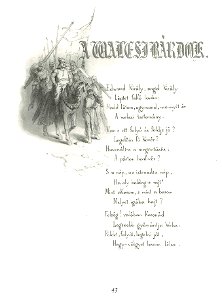 A WALESI BÁRDOK.
Edward király, angol király
Léptet fakó lován:
Hadd látom, úgymond, mennyit ér
A velszi tartomány.
Van-e ott folyó és földje jó?
Legelőin fű kövér?
Használt-e a megöntözés:
A pártos honfivér?
S a nép, az istenadta nép,
Ha oly boldog-e rajt'
Mint akarom, s mint a barom
Melyet igába hajt?
Felség! valóban koronád
Legszebb gyémántja Velsz:
Földet, folyót, legelni jót,
Hegy-völgyet benne lelsz.
43